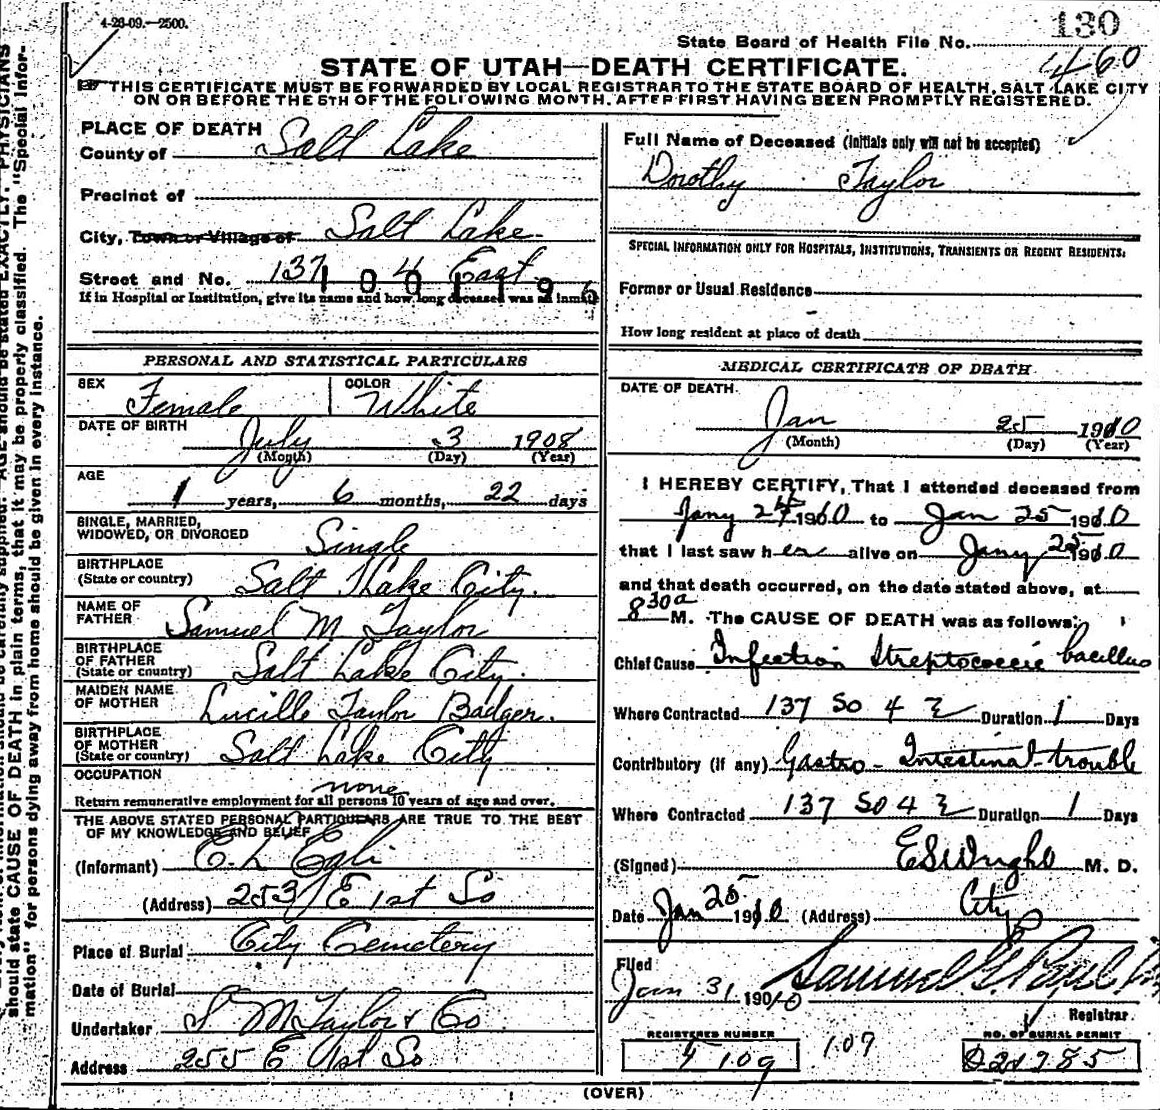 4-26-09.—2500.
130
State Board of Health File No. 460
STATE OF UTAH—DEATH CERTIFICATE.
THIS CERTIFICATE MUST BE FORWARDED BY LOCAL REGISTRAR TO THE STATE BOARD OF HEALTH, SALT LAKE CITY
ON OR BEFORE THE 5TH OF THE FOLLOWING MONTH, AFTER FIRST HAVING BEEN PROMPTLY REGISTERED.
PLACE OF DEATH
County of Salt Lake
Precinct of
City, Town or Village of Salt Lake
Street and No. 137 4 East
1001196
If in Hospital or Institution, give its name and how long deceased was an inmate
PERSONAL AND STATISTICAL PARTICULARS
SEX Female COLOR White
DATE OF BIRTH July 3 1908
(Month) (Day) (Year)
AGE
1 years, 6 months, 22 days
SINGLE, MARRIED,
WIDOWED, OR DIVORCED Single
BIRTHPLACE
(State or country) Salt Lake City.
NAME OF
FATHER Samuel M Taylor
BIRTHPLACE
OF FATHER
(State or country) Salt Lake City.
MAIDEN NAME
OF MOTHER Lucille Taylor Badger.
BIRTHPLACE
OF MOTHER
(State or country) Salt Lake City
OCCUPATION none
Return remunerative employment for all persons 10 years of age and over.
THE ABOVE STATED PERSONAL PARTICULARS ARE TRUE TO THE BEST
OF MY KNOWLEDGE AND BELIEF
(Informant) C. L Egli
(Address) 253 E 1st So
Place of Burial City Cemetery
Date of Burial
Undertaker S M Taylor & Co
Address 255 E 1st So
Full Name of Deceased (Initials only will not be accepted)
Dorothy Taylor
SPECIAL INFORMATION ONLY FOR HOSPITALS, INSTITUTIONS, TRANSIENTS OR RECENT RESIDENTS.
Former or Usual Residence
How long resident at place of death
MEDICAL CERTIFICATE OF DEATH
DATE OF DEATH.
Jan 25 1910
(Month) (Day) (Year)
I HEREBY CERTIFY, That I attended deceased from
Jany 24 1910 to Jan 25 1910
that I last saw her alive on Jany 25 1910
and that death occurred, on the date stated above, at
8 30 a M. The CAUSE OF DEATH was as follows:
Chief Cause Infection Streptococcic bacillus
Where Contracted 137 So 4 E Duration 1 Days
Contributory (if any) Gastro-Intestinal trouble
Where Contracted 137 So 4 E Duration 1 Days
(Signed) E S Wright M. D.
Date Jan 25 1910 (Address) City
Filed
Jan 31 1910 Samuel G. Paul
Registrar
REGISTERED NUMBER NO. OF BURIAL PERMIT
109 109
(OVER)
should state CAUSE OF DEATH in plain terms, that it may be properly classified. The "Special Infor-
mation" for persons dying away from home should be given in every instance.